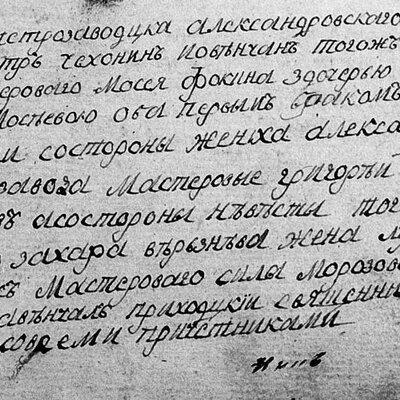 петрозаводцка александровского
петръ чехонинъ повѣнчанъ тогожъ
мастероваго Мосея фокина здочерью
Мосѣевою оба первымъ бракомъ
и состороны жениха алекса
завода Мастеровые григорѣй
въ асостороны нѣвѣсты тог
захара вѣрѣзнѣва жена
съ Мастероваго силы Морозов
вѣнчалъ приходцкіи священни
совреми причетниками